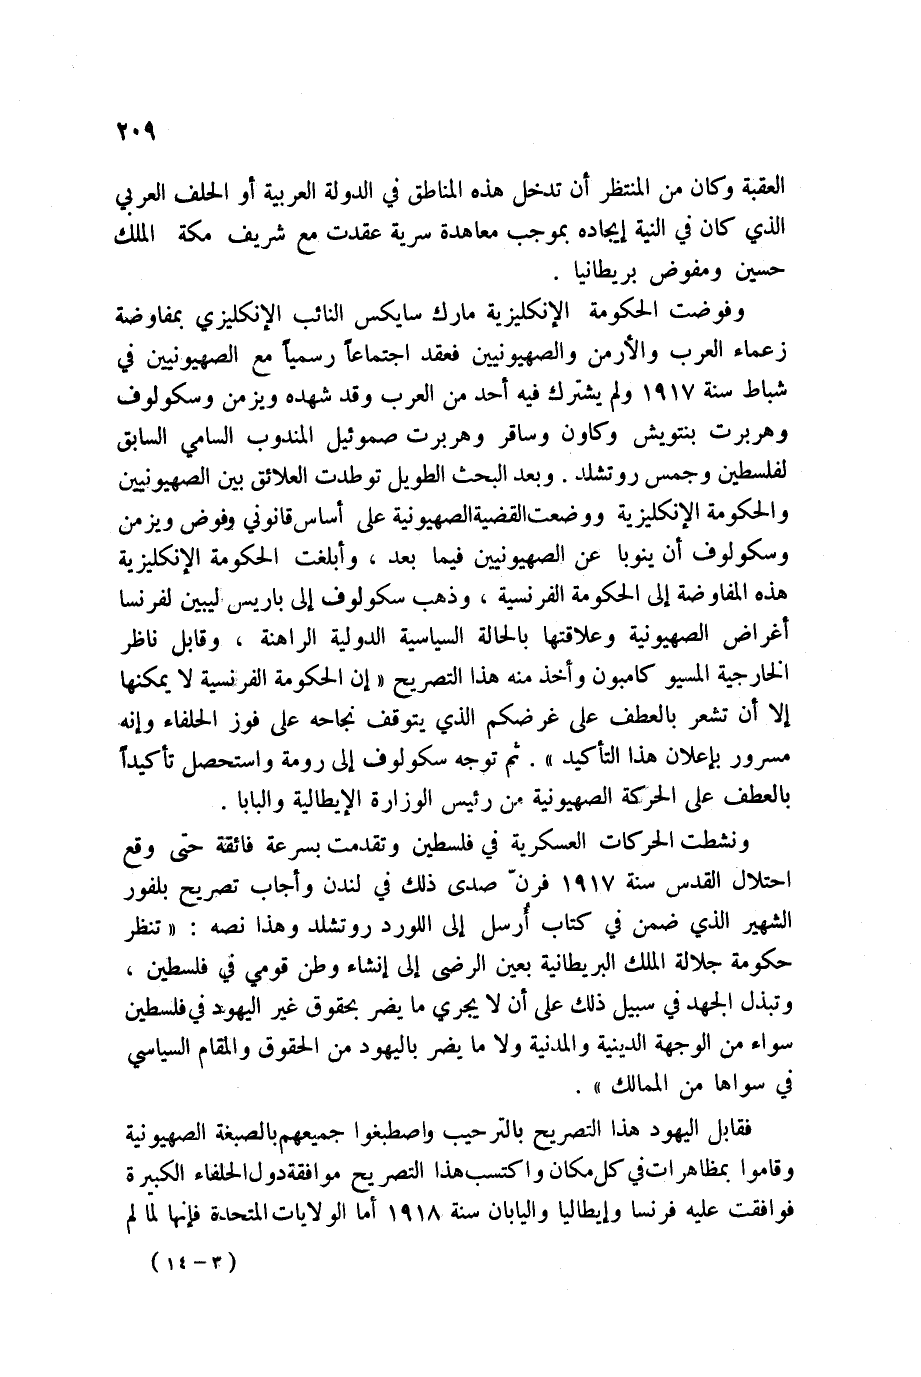 ٢٠٩
العقبة وكان من المنتظر أن تدخل هذه المناطق في الدولة العربية أو الحلف العربي
الذي كان في النية إيجاده بموجب معاهدة سرية عقدت مع شريف مكة الملك
حسين ومفوض بريطانيا .
وفوضت الحكومة الإنكليزية مارك سايكس النائب الإنكليزي بمفاوضة
زعماء العرب والأرمن والصهيونيين فعقد اجتماعاً رسمياً مع الصهيونيين في
شباط سنة ١٩١٧ ولم يشترك فيه أحد من العرب وقد شهده ويزمن وسكولوف
وهربرت بنتويش وكاون وساقر وهربرت صموئيل المندوب السامي السابق
لفلسطين وجمس روتشلد . وبعد البحث الطويل توطدت العلائق بين الصهيونيين
والحكومة الإنكليزية ووضعت القضية الصهيونية على أساس قانوني وفوض ويزمن
وسكولوف أن ينوبا عن الصهيونيين فيما بعد ، وأبلغت الحكومة الإنكليزية
هذه المفاوضة إلى الحكومة الفرنسية ، وذهب سكولوف إلى باريس ليبين لفرنسا
أغراض الصهيونية وعلاقتها بالحالة السياسية الدولية الراهنة ، وقابل ناظر
الخارجية المسيو كامبون وأخذ منه هذا التصريح « إن الحكومة الفرنسية لا يمكنها
إلا أن تشعر بالعطف على غرضكم الذي يتوقف نجاحه على فوز الحلفاء وإنه
مسرور بإعلان هذا التأكيد » . ثم توجه سكولوف إلى رومة واستحصل تأكيداً
بالعطف على الحركة الصهيونية من رئيس الوزارة الإيطالية والبابا .
ونشطت الحركات العسكرية في فلسطين وتقدمت بسرعة فائقة حتى وقع
احتلال القدس سنة ١٩١٧ فرنّ صدى ذلك في لندن وأجاب تصريح بلفور
الشهير الذي ضمن في كتاب أُرسل إلى اللورد روتشلد وهذا نصه : « تنظر
حكومة جلالة الملك البريطانية بعين الرضى إلى إنشاء وطن قومي في فلسطين ،
وتبذل الجهد في سبيل ذلك على أن لا يجري ما يضر بحقوق غير اليهود في فلسطين
سواء من الوجهة الدينية والمدنية ولا ما يضر باليهود من الحقوق والمقام السياسي
في سواها من الممالك » .
فقابل اليهود هذا التصريح بالترحيب واصطبغوا جميعهم بالصبغة الصهيونية
وقاموا بمظاهرات في كل مكان واكتسب هذا التصريح موافقة دول الحلفاء الكبيرة
فوافقت عليه فرنسا وإيطاليا واليابان سنة ١٩١٨ أما الولايات المتحدة فإنها لما لم
(٣ – ١٤)